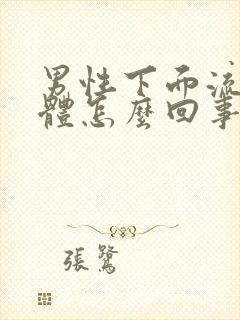 男性下面流
體怎麼回事
張鷺